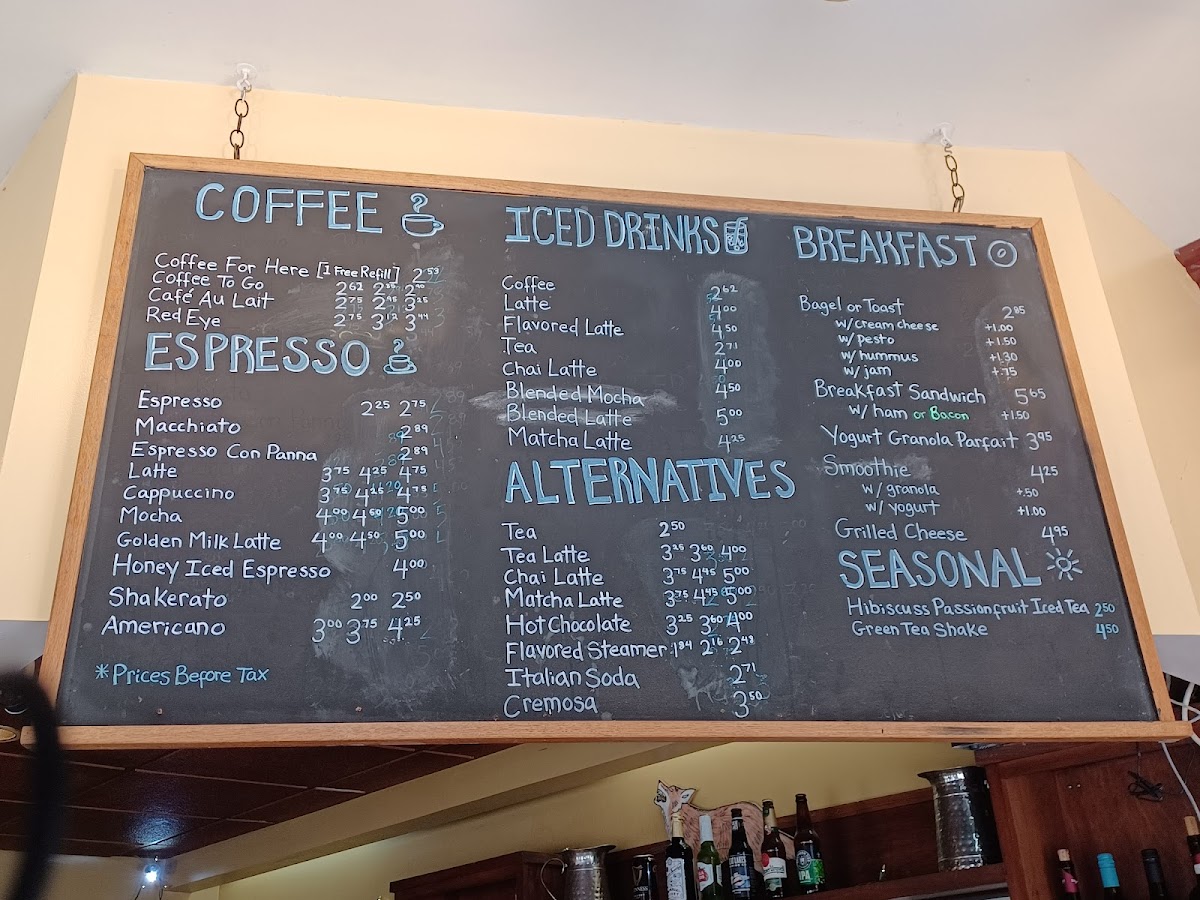 COFFEE
Coffee For Here [1 Free Refill] 2⁵³
Coffee To Go 2⁶²
Café Au Lait 2⁷⁵ 2⁹⁵ 3²⁵
Red Eye 2⁷⁵ 3¹² 3⁴⁴
ESPRESSO
Espresso 2²⁵ 2⁷⁵
Macchiato 2⁸⁹
Espresso Con Panna 2⁸⁹
Latte 3⁷⁵ 4²⁵ 4⁷⁵
Cappuccino 3⁷⁵ 4²⁵ 4⁷⁵
Mocha 4⁰⁰ 4⁵⁰ 5⁰⁰
Golden Milk Latte 4⁰⁰ 4⁵⁰ 5⁰⁰
Honey Iced Espresso 4⁰⁰
Shakerato 2⁰⁰ 2⁵⁰
Americano 3⁰⁰ 3⁷⁵ 4²⁵
*Prices Before Tax
ICED DRINKS
Coffee 2⁶²
Latte 4⁰⁰
Flavored Latte 4⁵⁰
Tea 2⁷¹
Chai Latte 4⁰⁰
Blended Mocha 4⁵⁰
Blended Latte 5⁰⁰
Matcha Latte 4²⁵
ALTERNATIVES
Tea 2⁵⁰
Tea Latte 3²⁵ 3⁶⁰ 4⁰⁰
Chai Latte 3⁷⁵ 4⁴⁵ 5⁰⁰
Matcha Latte 3⁷⁵ 4⁴⁵ 5⁰⁰
Hot Chocolate 3²⁵ 3⁶⁰ 4⁰⁰
Flavored Steamer 1⁸⁴ 2¹⁶ 2⁴⁸
Italian Soda 2⁷¹
Cremosa 3⁵⁰
BREAKFAST
Bagel or Toast 2⁸⁵
w/cream cheese +1.00
w/pesto +1.50
w/hummus +1.30
w/jam +.75
Breakfast Sandwich 5⁶⁵
w/ ham or Bacon +1.50
Yogurt Granola Parfait 3⁹⁵
Smoothie 4²⁵
w/granola +.50
w/ yogurt +1.00
Grilled Cheese 4⁹⁵
SEASONAL
Hibiscuss Passionfruit Iced Tea 2⁵⁰
Green Tea Shake 4⁵⁰
GUINNESS
IPA